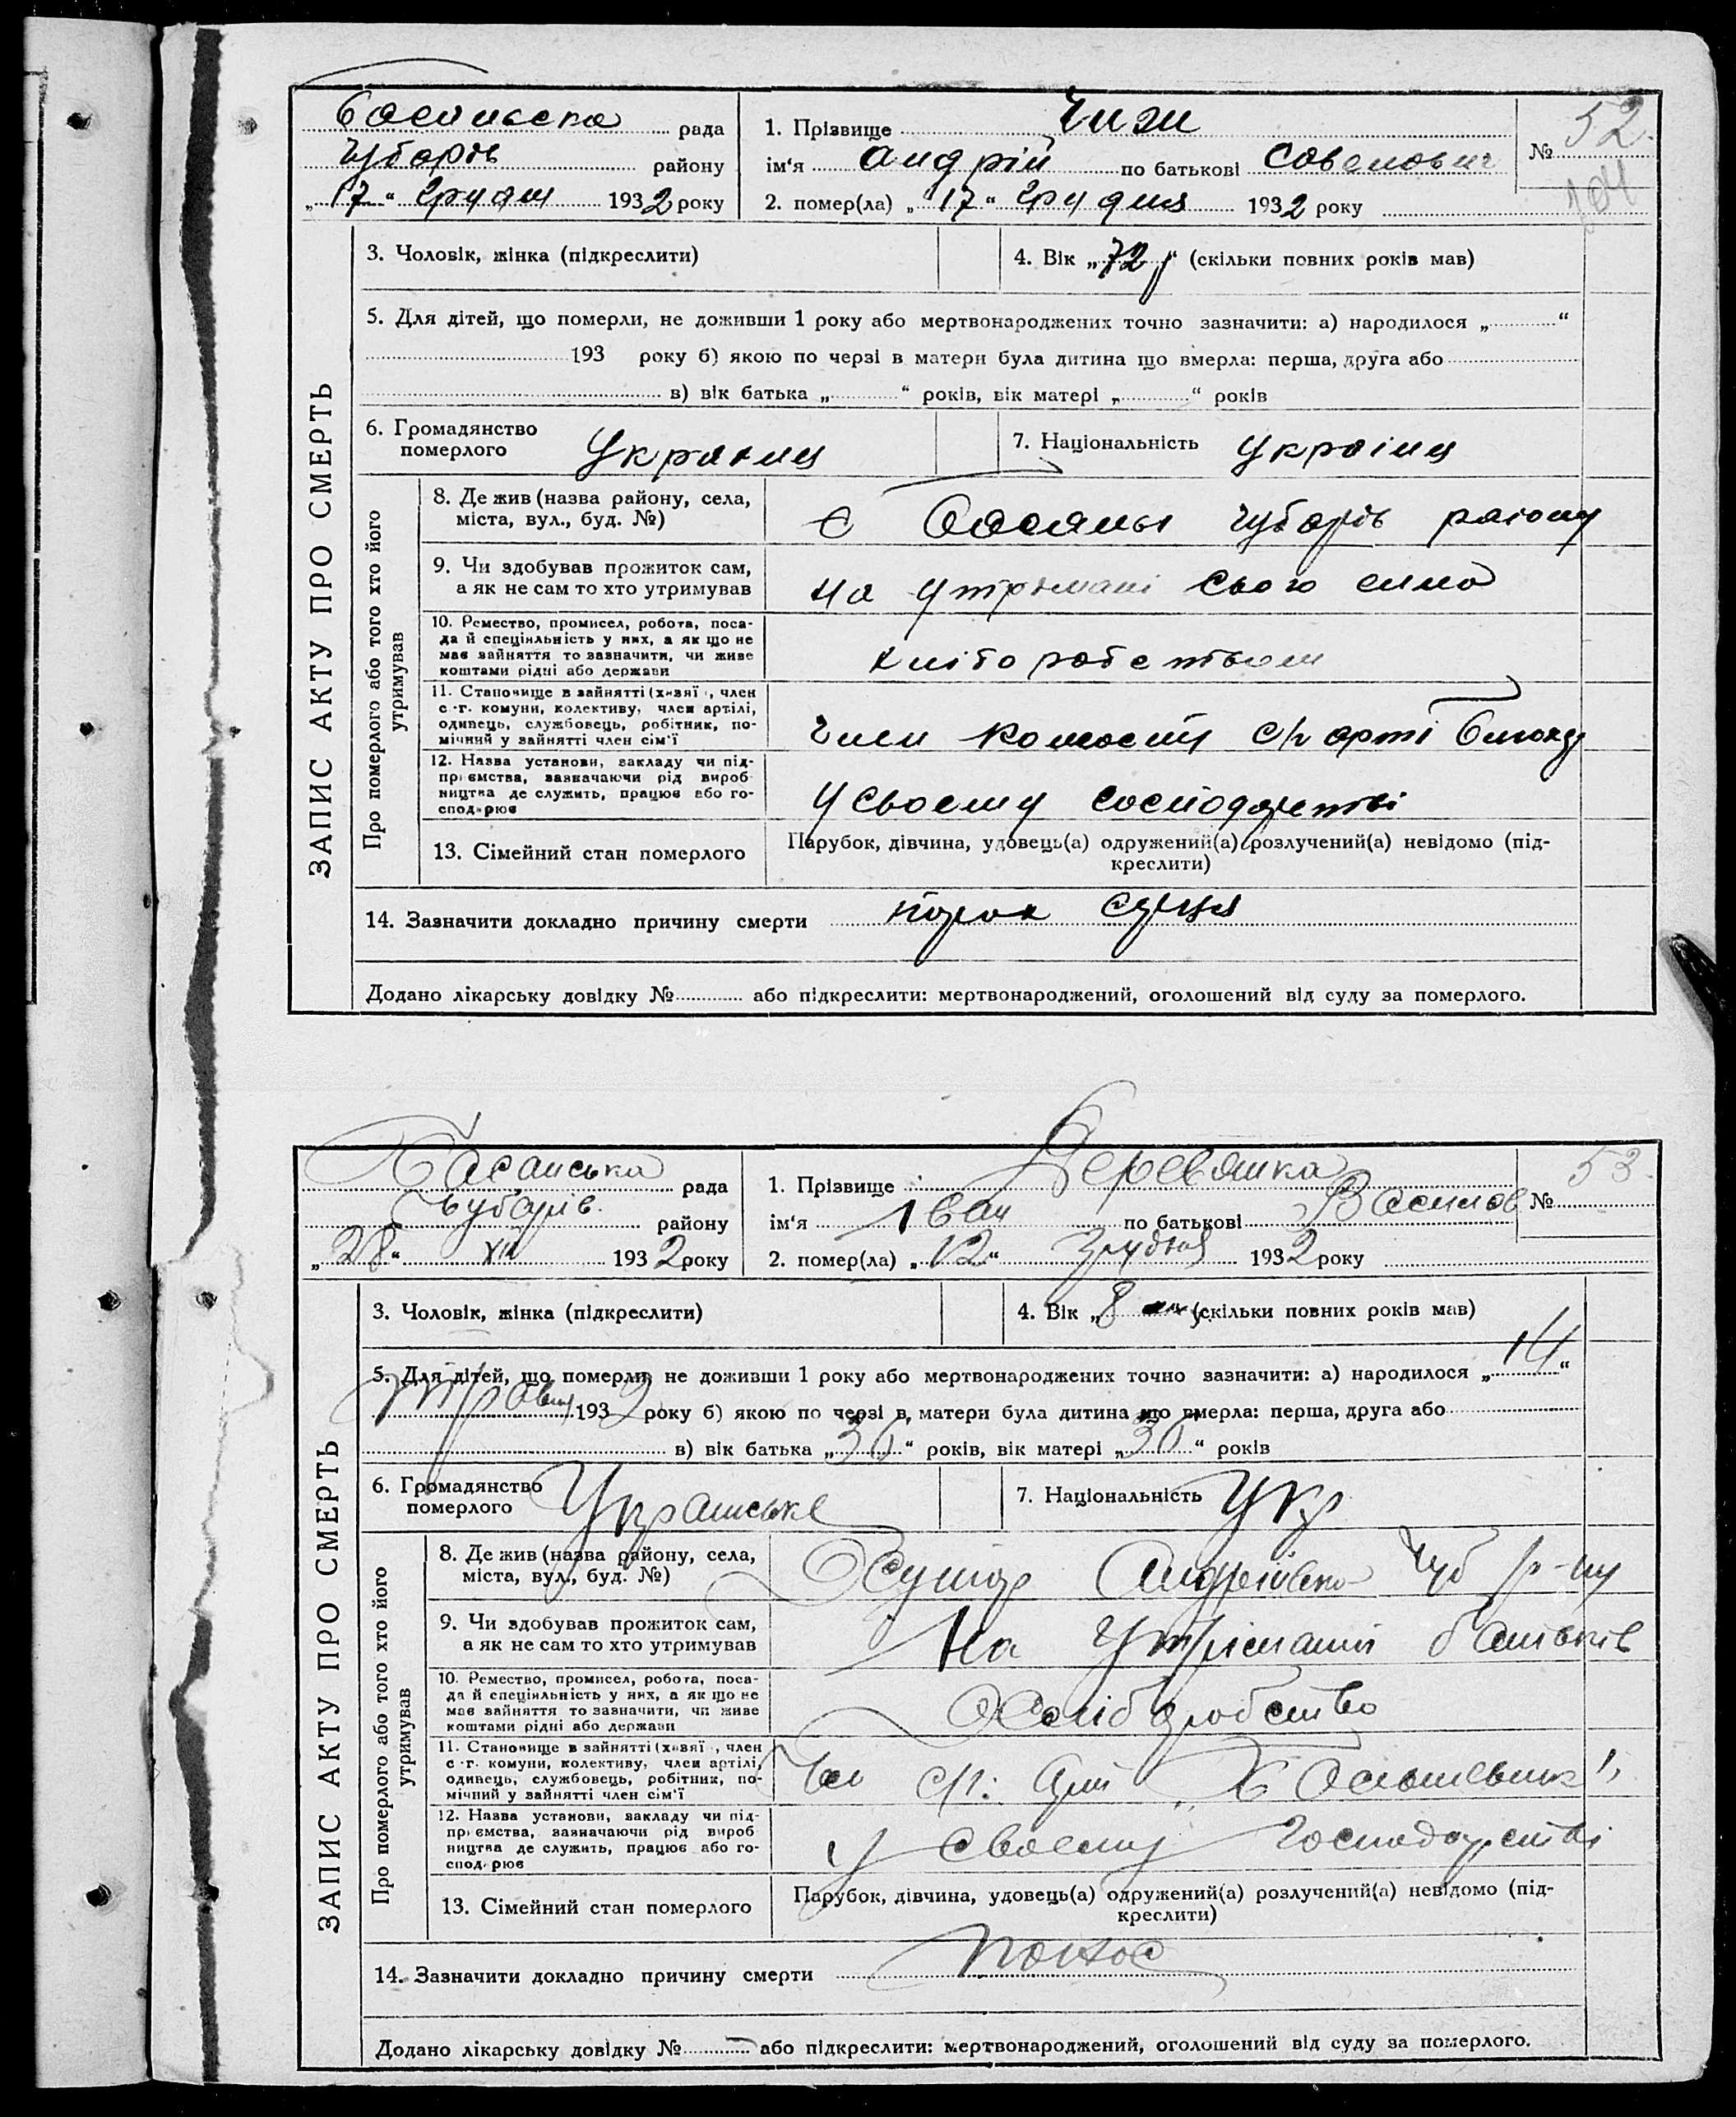 Басанська рада
Чубарів району
„17“ грудня 1932 року
1. Прізвище Чиж
ім‘я Андрій по батькові Савелович
2. помер(ла) „17“ грудня 1932 року
№ 52.
104
ЗАПИС АКТУ ПРО СМЕРТЬ
3. Чоловік, жінка (підкреслити)
4. Вік „72“ (скільки повних років мав)
5. Для дітей, що померли, не доживши 1 року або мертвонароджених точно зазначити: а) народилося „ “
193 року б) якою по черзі в матери була дитина що вмерла: перша, друга або
в) вік батька „ “ років, вік матері „ “ років
6. Громадянство
померлого
7. Національність Україн
Про померлого або того хто його
утримував
8. Де жив (назва району, села,
міста, вул., буд. №)
с Басань Чубарів району
9. Чи здобував прожиток сам,
а як не сам то хто утримував
на утримані свого сина
10. Ремество, промисел, робота, поса-
да й спеціяльність у них, а як що не
має зайняття то зазначити, чи живе
коштами рідні або держави
11. Становище в зайнятті (хазяї , член
с.-г. комуни, колективу, член артілі,
одинець, службовець, робітник, по-
мічний у зайнятті член сім‘ї
12. Назва установи, закладу чи під-
приємства, зазначаючи рід вироб
ництва де служить, працює або го-
сподарює
у своему господарстві
13. Сімейний стан померлого
Парубок, дівчина, удовець(а) одружений(а) розлучений(а) невідомо (під-
креслити)
14. Зазначити докладно причину смерти порок серця
Додано лікарську довідку № або підкреслити: мертвонароджений, оголошений від суду за померлого.
Басанська рада
Чубарів. району
„28“ XII 1932 року
1. Прізвище Деревянка
ім‘я Іван по батькові Васильов
2. помер(ла) „12“ грудня 1932 року
№ 53
ЗАПИС АКТУ ПРО СМЕРТЬ
3. Чоловік, жінка (підкреслити)
4. Вік „8 (скільки повних років мав)
5. Для дітей, що померли, не доживши 1 року або мертвонароджених точно зазначити: а) народилося „14“
травня 1932 року б) якою по черзі в матери була дитина що вмерла: перша, друга або
в) вік батька „30“ років, вік матері „30“ років
6. Громадянство
померлого
Українське
7. Національність Укр
Про померлого або того хто його
утримував
8. Де жив (назва району, села,
міста, вул., буд. №)
Хутор Андреівка Чуб р-ну
9. Чи здобував прожиток сам,
а як не сам то хто утримував
На утриманні батьків
10. Ремество, промисел, робота, поса-
да й спеціяльність у них, а як що не
має зайняття то зазначити, чи живе
коштами рідні або держави
Хліборобство
11. Становище в зайнятті (хазяї , член
с.-г. комуни, колективу, член артілі,
одинець, службовець, робітник, по-
мічний у зайнятті член сім‘ї
12. Назва установи, закладу чи під-
приємства, зазначаючи рід вироб
ництва де служить, працює або го-
сподарює
у своему Господарстві
13. Сімейний стан померлого
Парубок, дівчина, удовець(а) одружений(а) розлучений(а) невідомо (під-
креслити)
14. Зазначити докладно причину смерти понос
Додано лікарську довідку № або підкреслити: мертвонароджений, оголошений від суду за померлого.